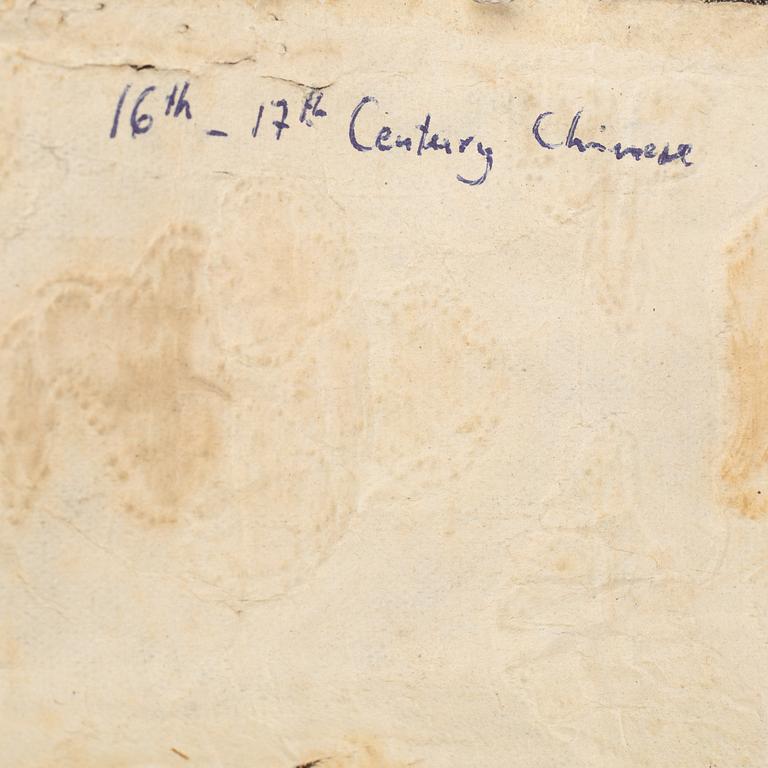 16th - 17th Century Chinese